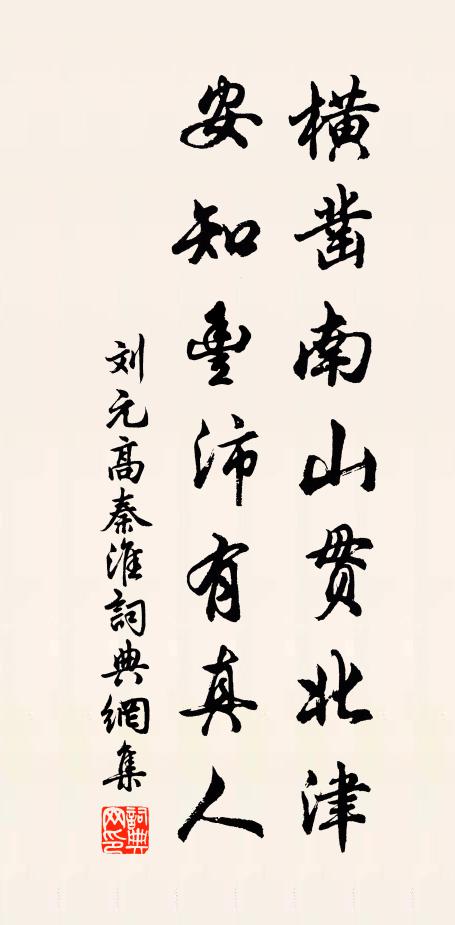 橫凿南山貫北津
安知豊沛有真人
刘元高秦淮詞典網集
詞典網印